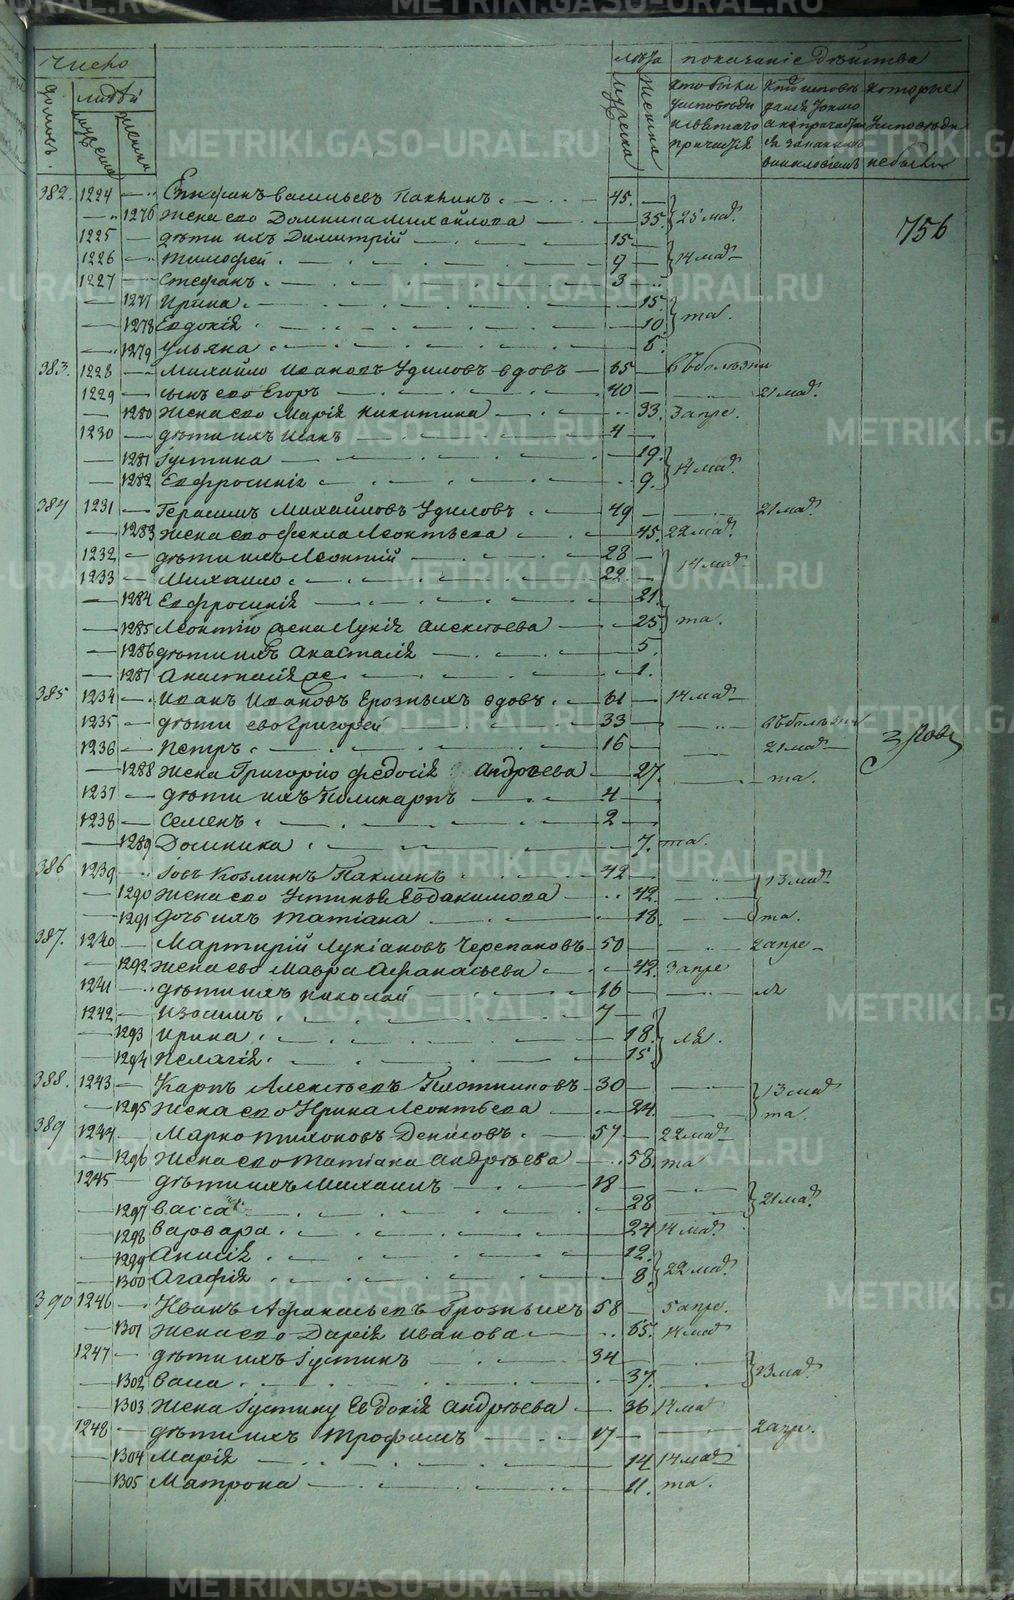 METRIKI.GASO-URAL.RU
Число лѣта показаніе дѣйства
домовъ. людей мужеска женска
мужеска женска
кто были у исповѣди и святаго причастія
которые у исповѣди не были
382. 1224 Епифанъ Васильевъ Пахнинъ 45.
1276 Жена его Домника Михайлова 35. 25 мар.
756
1225 дѣти ихъ Димитрій 15
1226 Тимофей 9 14 мар
1227 Стефанъ 3
1277 Ирина 15
1278 Евдокія 10 та.
1279 Ульяна 5.
383. 1228 Михайло Ивановъ Удиловъ вдовъ 65 въ болѣзни
1229 сынъ его Егоръ 40 21 мар.
1280 Жена его Марія Никитина 33. 3 апре.
1230 дѣти ихъ Исакъ 4
1281 Іустина 19.
1282 Евфросинія 9. 14 мар.
384 1231 Герасимъ Михайловъ Удиловъ 49 21 мар.
1283 Жена его Фекла Леонтьева 45. 22 мар.
1232 дѣти ихъ Леонтій 28
1233 Михаило 22 14 мар
1284 Евфросинія 21.
1285 Леонтію жена Лукія Алексѣева 25 та.
1286 дѣти ихъ Анастасія 5.
1287 Анастасія 1.
385 1234 Иванъ Ивановъ Грозныхъ вдовъ 61 14 мар
1235 дѣти его Григорей 33 въ болѣзни
1236 Петръ 16 21 мар
1288 Жена Григорію Федосія Андрѣева 27. та.
1237 дѣти ихъ Поликарпъ 4
1238 Семенъ 2
1289 Домника 7. та.
386 1239 Іовъ Козминъ Паклинъ 42 13 мар
1290 Жена его Устинья Евдакимова 42.
1291 дочь ихъ Татіана 18. та.
387. 1240 Мартирій Лукіановъ Черепановъ 50 2 апре
1292 Жена его Мавра Афанасьева 42. 3 апре
1241 дѣти ихъ Николай 16
1242 Изосимъ 7
1293 Ирина 18.
1294 Пелагія 15
388. 1243 Карпъ Алексѣевъ Плотниковъ 30 13 мар
1295 Жена его Ирина Леонтьева 24 та.
389 1244 Марко Тихоновъ Денисовъ 57 22 мар
1296 Жена его Татіана Андрѣева 58. та
1245 дѣти ихъ Михаилъ 18
1297 Васса 28 21 мар.
1298 Варвара 24 14 мар.
1299 Анисія 12.
1300 Агафія 8. 22 мар.
390 1246 Иванъ Афанасьевъ Грозныхъ 58 5 апре.
1301 Жена его Дарія Иванова 65. 14 мар
1247 дѣти ихъ Іустинъ 34
1302 Васа 37. 13 мар.
1303 Жена Іустину Евдокія Андрѣева 36 14 ма
1248 дѣти ихъ Трофимъ 17 2 апр.
1304 Марія 14 14 мар
1305 Матрона 11. та.